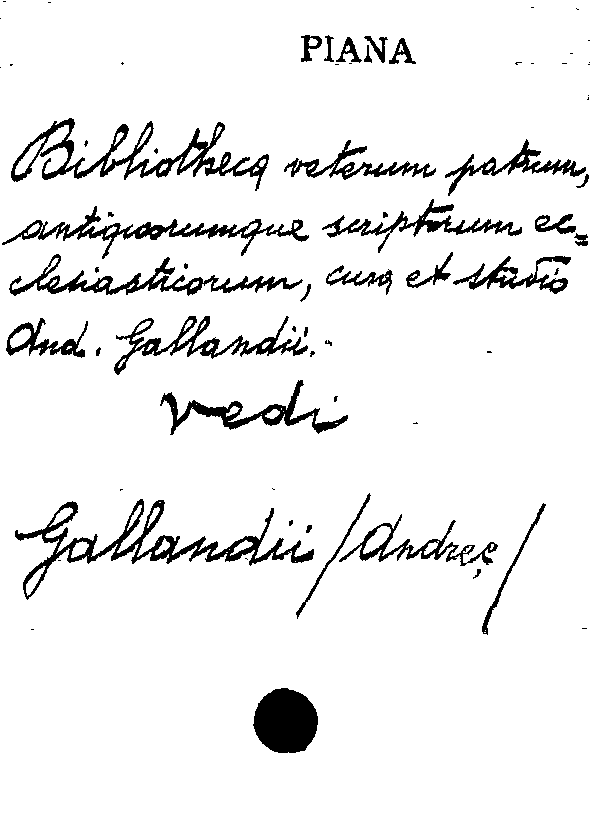 PIANA
Bibliotheca veterum patrum,
antiquorumque scriptorum ec=
clesiasticorum, cura et studio
And. Gallandii.
vedi
Gallandii /Andreę/